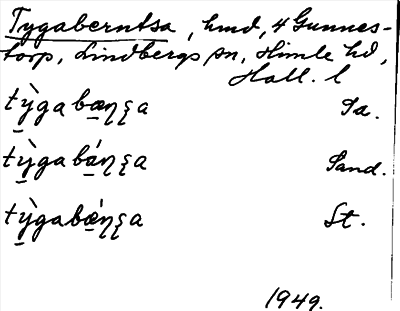 Tygaberntsa, hmd, 4 Gunnes-
torp, Lindbergs sn, Himle hd,
Hall. l
tỳ̱gabæ̱ɳʂa Ia.
tỳ̱gabá̱ɳʂa Sand.
tỳ̱gabǽ̱ɳʂa St.
1949.